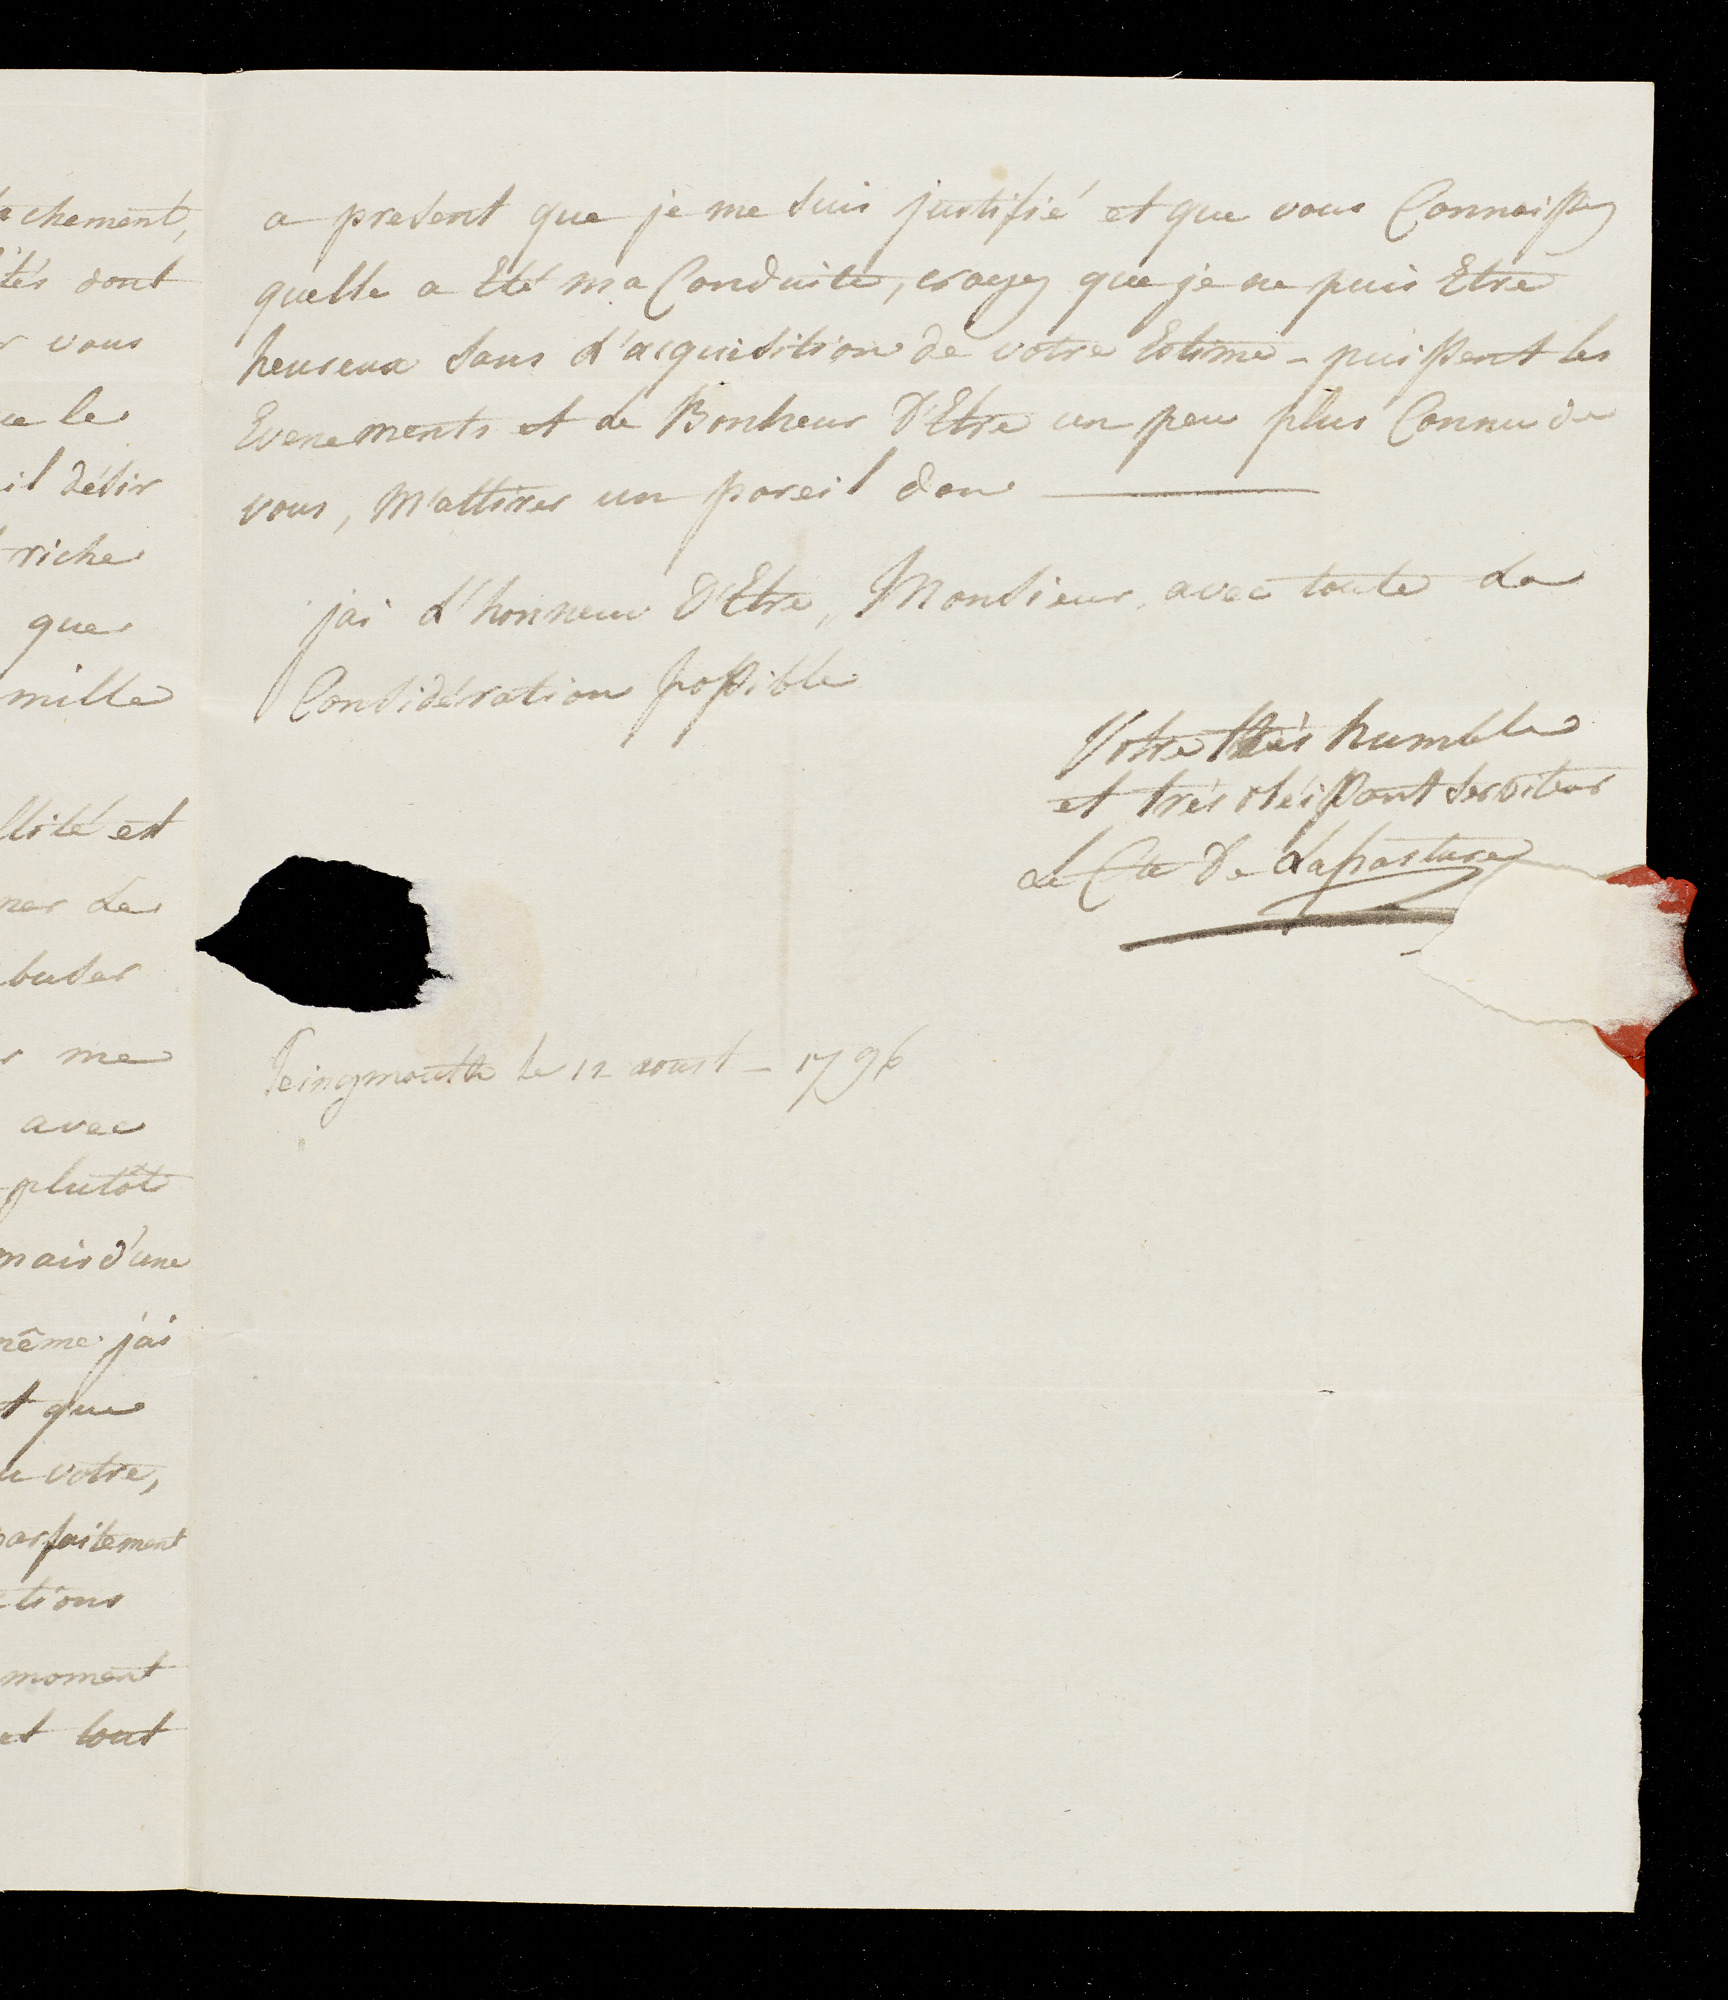 achement,
tés dont
r vous
ue le
il désir
riche
que
mille
llité est
ner Le
buser
r me
avec
plutôt
mais d'une
même j'ai
t que
u votre,
parfaitement
ctions
moment
et tout
a present que je me suis justifié et que vous Connoissez
quelle a Eté ma Conduite, croyez que je ne puis Etre
heureux sans L'acquisition de votre Estime - puissent les
Evenements et Le Bonheur D'Etre un peu plus Connu de
vous, M'attirer un pareil don
jai L'honneur D'Etre, Monsieur, avec toute La
Considération possible
Votre très humble
et très obéissant serviteur
Le Cte De Lapasture
Teingmouth le 12 aoust - 1796